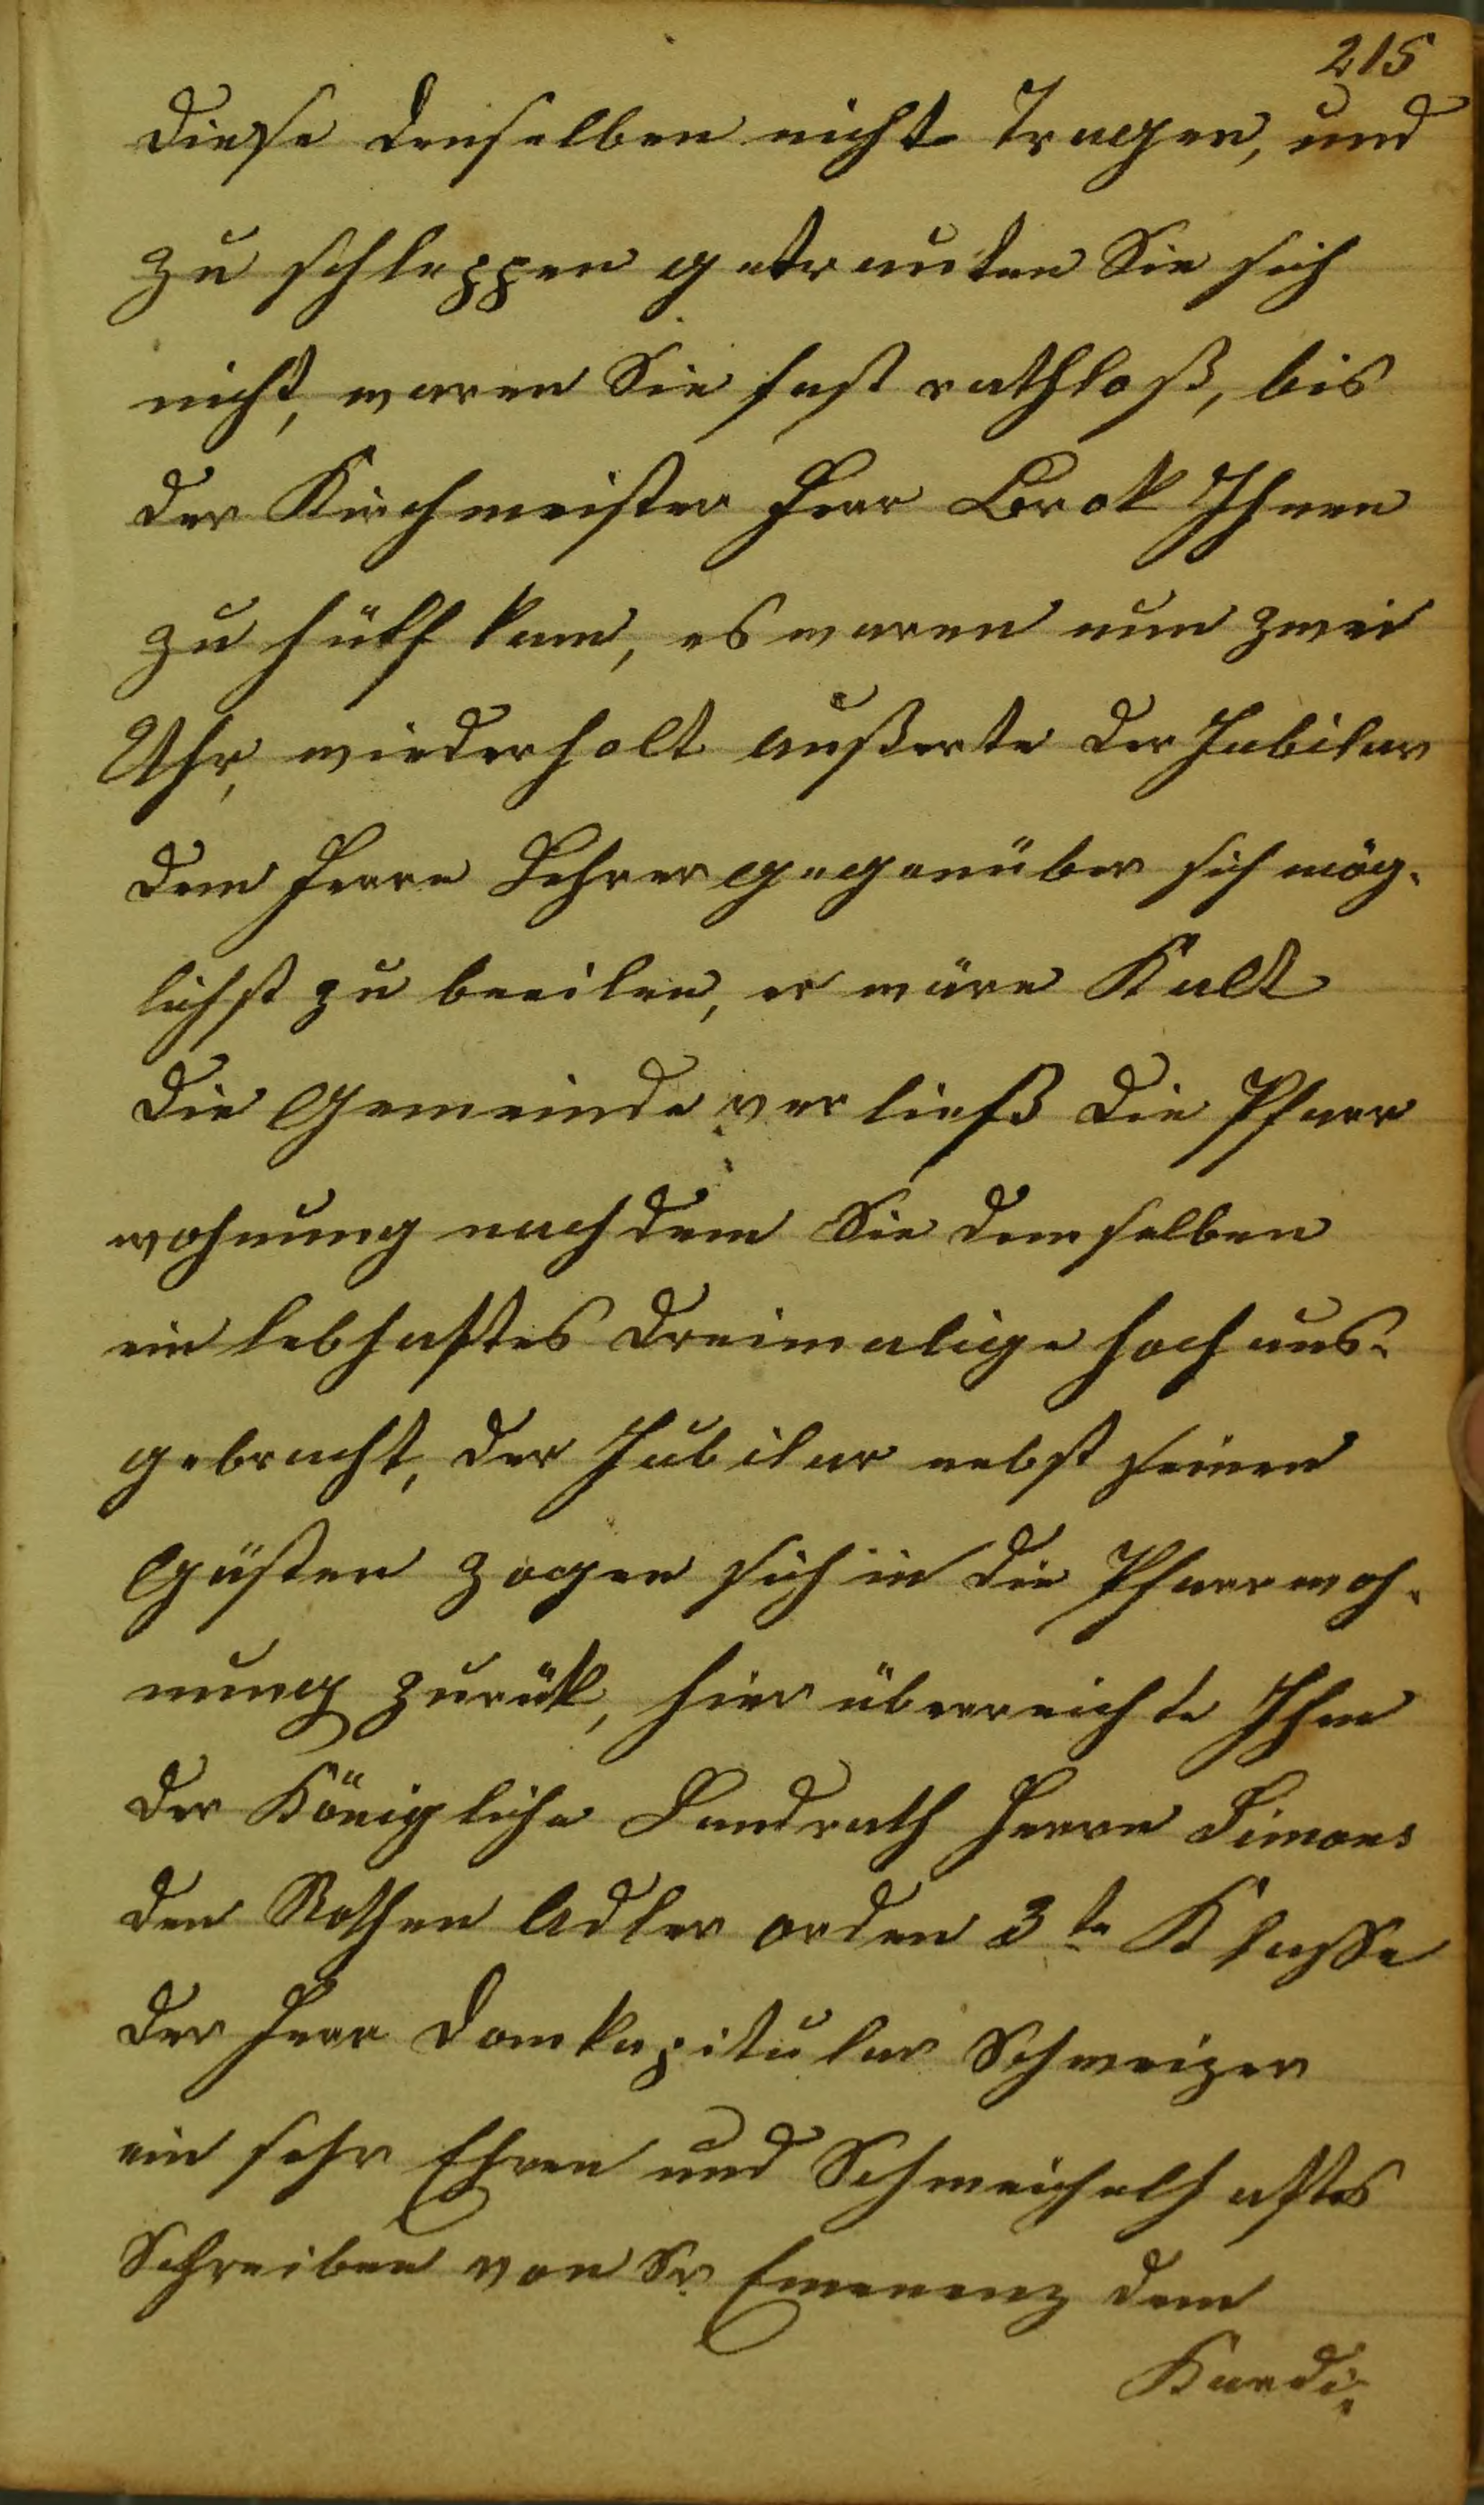 215
diese denselben nicht Tragen, und
zu schleppen getrauten Sie sich
nicht, waren Sie fast rathloß, bis
der Kirchmeister Herr Brok Ihnen
zu hülf kam, es waren nun zwei
Uhr, wiederholt außerte der Jubilar
dem Herrn Lehrer gegenüber sich mög-
lichst zu beeilen, er wäre Kalt
die Gemeinde verließ die Pfarr
wohnung nachdem Sie demselben
ein lebhaftes dreimalige hoch aus-
gebracht, der Jubilar nebst seinen
Gästen zogen sich in die Pfarrwoh-
nung zurük, hier überreichte Ihm
der Königliche Landrath Herrn Simons
den Rothen Adler orden 3te Klasse
der Herr Domkapitular Schweizer
ein sehr Ehren und Schmeichelhaftes
Schreiben von Sr. Emenenz dem
Kardi-